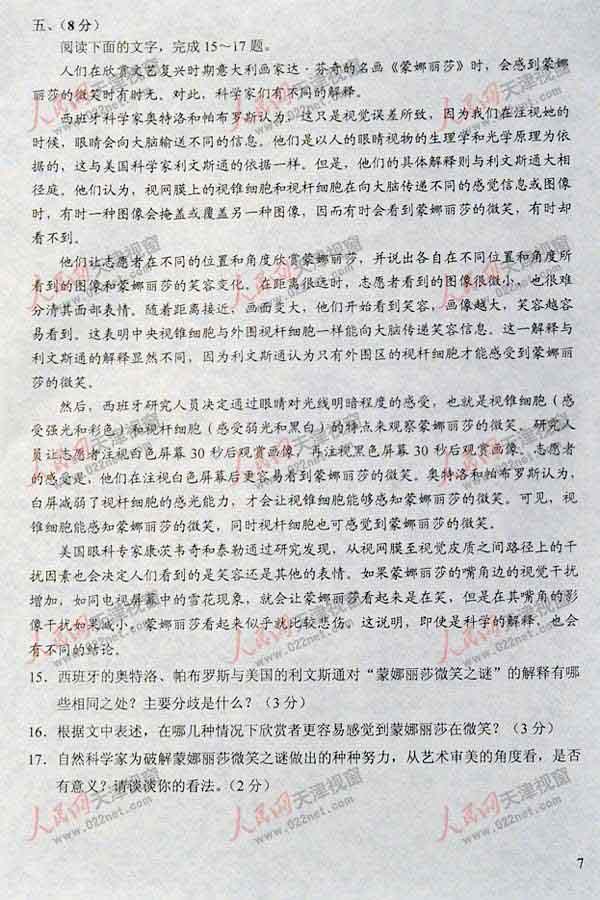 五、（8分）
阅读下面的文字，完成15～17题。
人们在欣赏文艺复兴时期意大利画家达·芬奇的名画《蒙娜丽莎》时，会感到蒙娜
丽莎的微笑时有时无。对此，科学家们有不同的解释。
西班牙科学家奥特洛和帕布罗斯认为，这只是视觉误差所致，因为我们在注视她的
时候，眼睛会向大脑输送不同的信息。他们是以人的眼睛视物的生理学和光学原理为依
据的，这与美国科学家利文斯通的依据一样。但是，他们的具体解释则与利文斯通大相
径庭。他们认为，视网膜上的视锥细胞和视杆细胞在向大脑传递不同的感觉信息或图像
时，有时一种图像会掩盖或覆盖另一种图像，因而有时会看到蒙娜丽莎的微笑，有时却
看不到。
他们让志愿者在不同的位置和角度欣赏蒙娜丽莎，并说出各自在不同位置和角度所
看到的图像和蒙娜丽莎的笑容变化。在距离很远时，志愿者看到的图像很微小，也很难
分清其面部表情。随着距离接近，画面变大，他们开始看到笑容，画像越大，笑容越容
易看到。这表明中央视锥细胞与外围视杆细胞一样能向大脑传递笑容信息。这一解释与
利文斯通的解释显然不同，因为利文斯通认为只有外围区的视杆细胞才能感受到蒙娜丽
莎的微笑。
然后，西班牙研究人员决定通过眼睛对光线明暗程度的感受，也就是视锥细胞（感
受强光和彩色）和视杆细胞（感受弱光和黑白）的特点来观察蒙娜丽莎的微笑。研究人
员让志愿者注视白色屏幕30秒后观赏画像，再注视黑色屏幕30秒后观赏画像。志愿者
的感受是，他们在注视白色屏幕后更容易看到蒙娜丽莎的微笑。奥特洛和帕布罗斯认为，
白屏减弱了视杆细胞的感光能力，才会让视锥细胞能够感知蒙娜丽莎的微笑。可见，视
锥细胞能感知蒙娜丽莎的微笑，同时视杆细胞也可感觉到蒙娜丽莎的微笑。
美国眼科专家康茨韦奇和泰勒通过研究发现，从视网膜至视觉皮质之间路径上的干
扰因素也会决定人们看到的是笑容还是其他的表情。如果蒙娜丽莎的嘴角边的视觉干扰
增加，如同电视屏幕中的雪花现象，就会让蒙娜丽莎看起来是在笑，但是在其嘴角的影
像干扰如果减小，蒙娜丽莎看起来似乎就比较悲伤。这说明，即使是科学的解释，也会
有不同的结论。
15. 西班牙的奥特洛、帕布罗斯与美国的利文斯通对“蒙娜丽莎微笑之谜”的解释有哪
些相同之处？主要分歧是什么？（3分）
16. 根据文中表述，在哪几种情况下欣赏者更容易感觉到蒙娜丽莎在微笑？（3分）
17. 自然科学家为破解蒙娜丽莎微笑之谜做出的种种努力，从艺术审美的角度看，是否
有意义？请谈谈你的看法。（2分）
人民网 天津视窗
www.022net.com
7